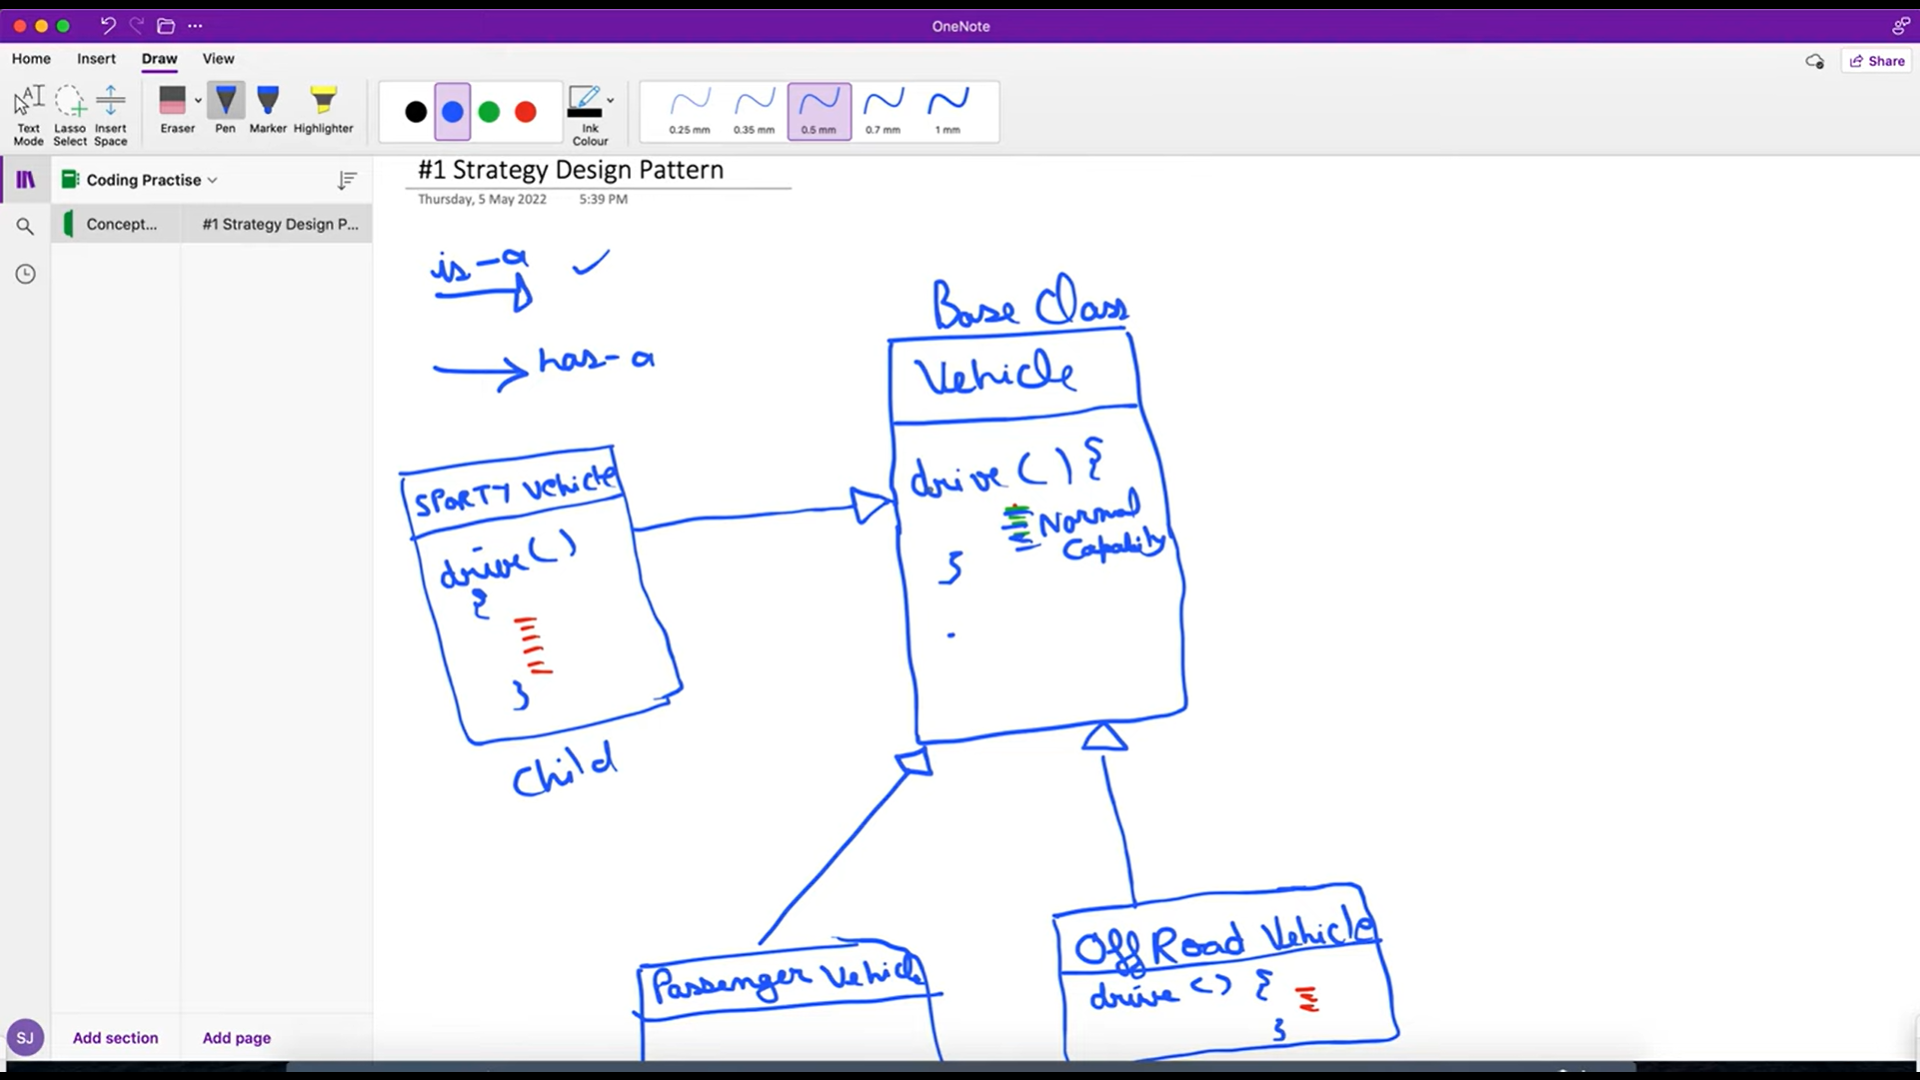 OneNote
Home Insert Draw View
Share
Text Mode
Lasso Select
Insert Space
Eraser
Pen
Marker
Highlighter
Ink Colour
0.25 mm
0.35 mm
0.5 mm
0.7 mm
1 mm
Coding Practise
Concept...
#1 Strategy Design P...
#1 Strategy Design Pattern
Thursday, 5 May 2022 5:39 PM
is-a
has-a
Base Class
Vehicle
drive () {
Normal
Capability
}
SPORTY Vehicle
drive ()
{
}
Child
Passenger Vehicle
Off Road Vehicle
drive () {
}
SJ
Add section
Add page